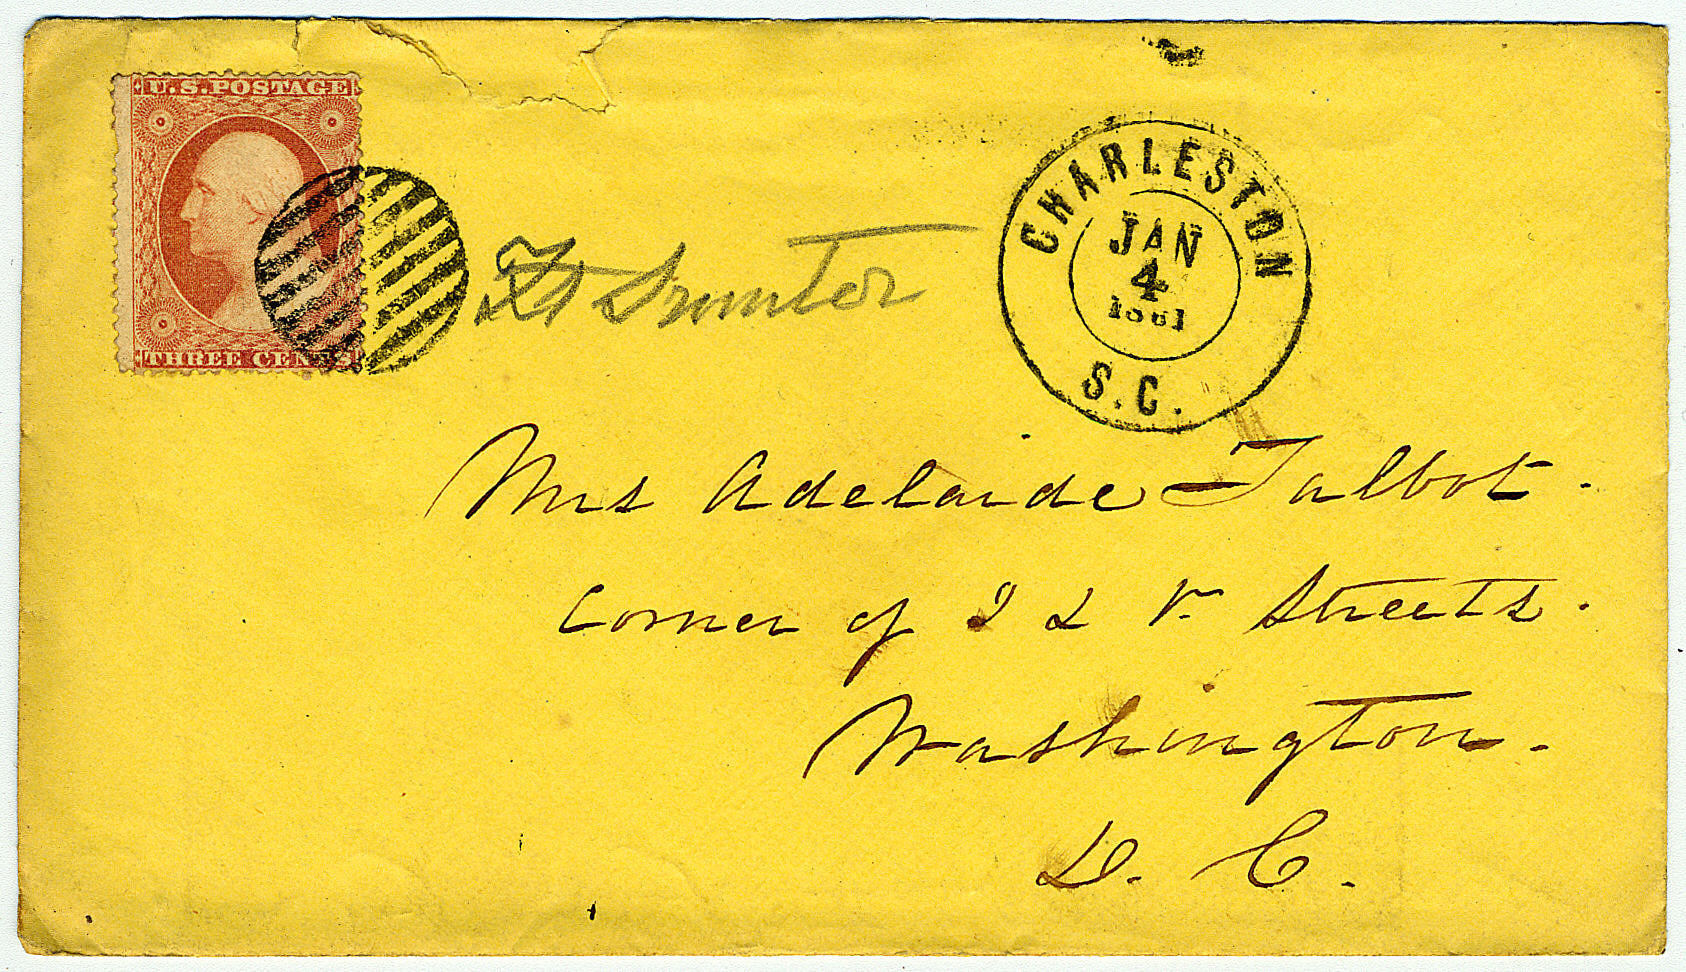 U.S. POSTAGE
THREE CENTS
Ft Sumter
CHARLESTON
JAN
4
1861
S.C.
Mrs Adelaide Talbot.
Corner of
Streets.
Washington.
D. C.